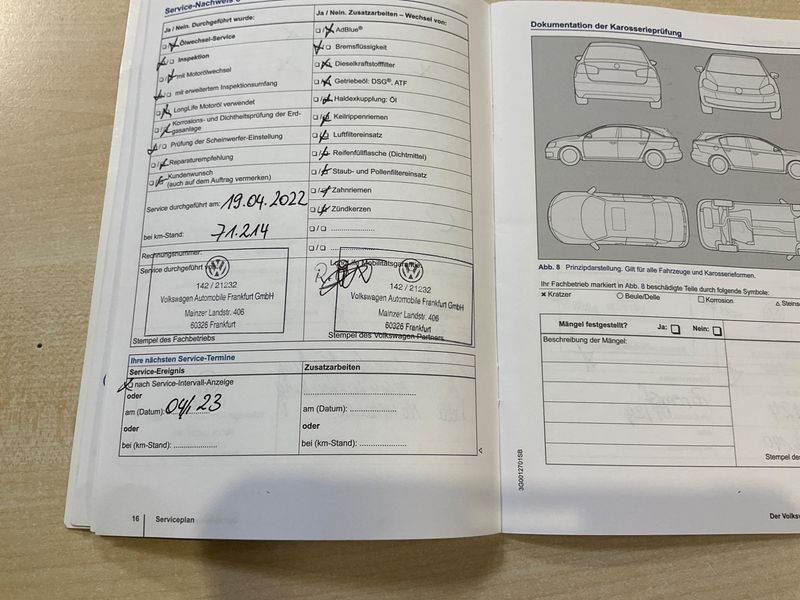 Service-Nachweis
Ja / Nein. Durchgeführt wurde:
Ölwechsel-Service
Inspektion
mit Motorölwechsel
mit erweitertem Inspektionsumfang
LongLife Motoröl verwendet
Korrosions- und Dichtheitsprüfung der Erd-
gasanlage
Prüfung der Scheinwerfer-Einstellung
Reparaturempfehlung
Kundenwunsch
(auch auf dem Auftrag vermerken)
Service durchgeführt am: 19.04.2022
bei km-Stand: 71.214
Rechnungsnummer:
Service durchgeführt von:
142 / 21232
Volkswagen Automobile Frankfurt GmbH
Mainzer Landstr. 406
60326 Frankfurt
Stempel des Fachbetriebs
Ja / Nein. Zusatzarbeiten – Wechsel von:
AdBlue®
Bremsflüssigkeit
Dieselkraftstofffilter
Getriebeöl: DSG®, ATF
Haldexkupplung: Öl
Keilrippenriemen
Luftfiltereinsatz
Reifenfüllflasche (Dichtmittel)
Staub- und Pollenfiltereinsatz
Zahnriemen
Zündkerzen
LongLife Mobilitätsgarantie
142 / 21232
Volkswagen Automobile Frankfurt GmbH
Mainzer Landstr. 406
60326 Frankfurt
Stempel des Volkswagen Partners
Ihre nächsten Service-Termine
Service-Ereignis
nach Service-Intervall-Anzeige
oder
am (Datum): 04/23
oder
bei (km-Stand): ....................
Zusatzarbeiten
am (Datum): ....................
oder
bei (km-Stand): ....................
16 Serviceplan
Dokumentation der Karosserieprüfung
Abb. 8 Prinzipdarstellung. Gilt für alle Fahrzeuge und Karosserieformen.
Ihr Fachbetrieb markiert in Abb. 8 beschädigte Teile durch folgende Symbole:
× Kratzer ○ Beule/Delle □ Korrosion △ Steins
Mängel festgestellt? Ja: □ Nein: □
Beschreibung der Mängel:
Stempel des
3G0012701SB
Der Volksw